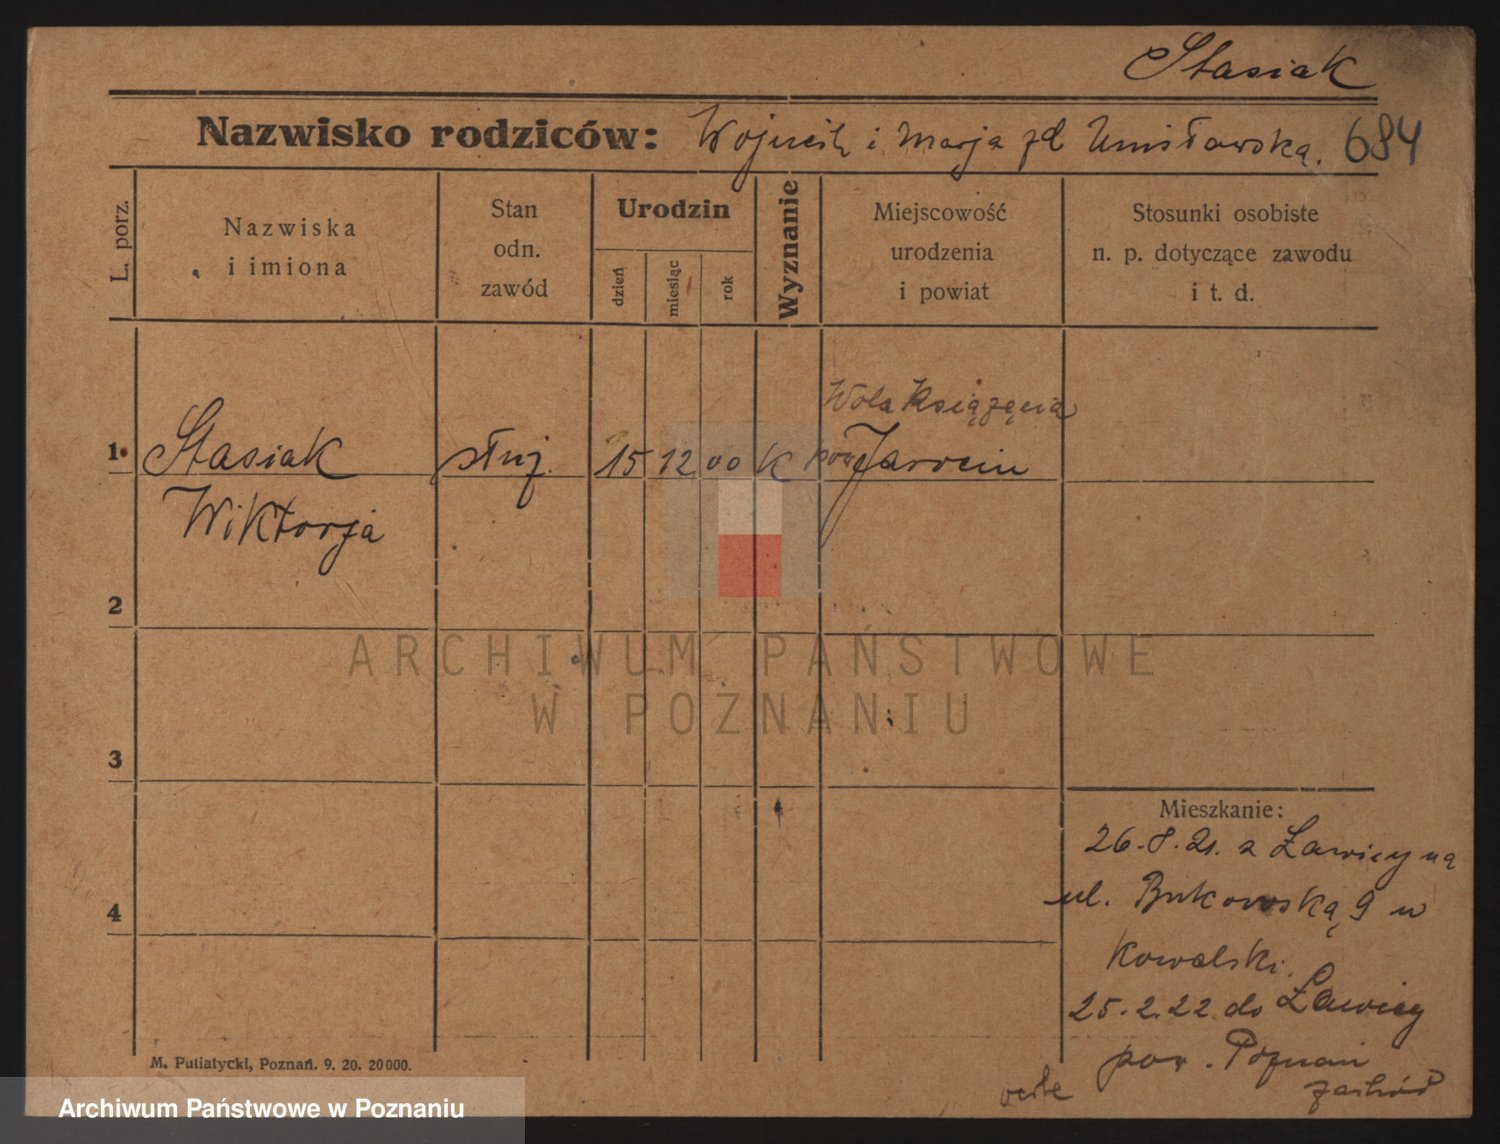 Stasiak
Nazwisko rodziców: Wojciech i Marja zd Umisławska. 684
L. porz.
Nazwiska
i imiona
Stan
odn.
zawód
Urodzin
dzień
miesiąc
rok
Wyznanie
Miejscowość
urodzenia
i powiat
Stosunki osobiste
n. p. dotyczące zawodu
i t. d.
Wola Książęcia
1 Stasiak służ. 15 12 00 K pow Jarocin
Wiktorja
2
ARCHIWUM PAŃSTWOWE
W POZNANIU
3
Mieszkanie:
26.8.21. z Ławicy na
ul. Bukowską 9 u
4
Kowalski.
25.2.22 do Ławicy
pow. Poznań
zachód
M. Putiatycki, Poznań. 9. 20. 20000.
Archiwum Państwowe w Poznaniu